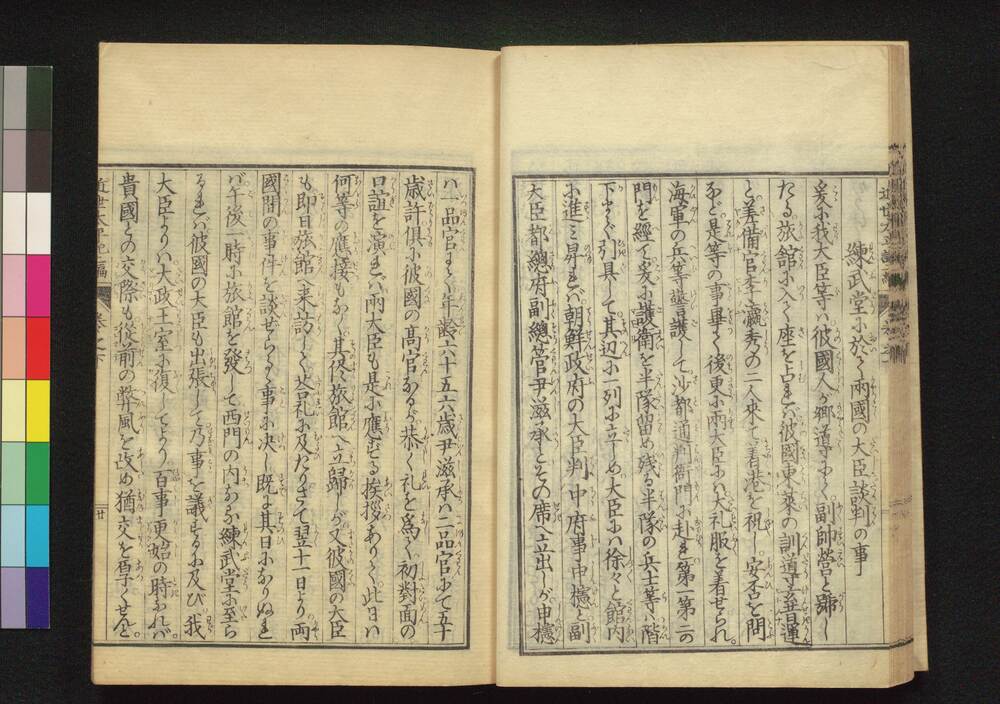 練武堂に於て兩國の大臣談判の事
爰に我大臣等ハ彼國人が郷導にて副帥營と號し
たる旅館に入て座を占れバ彼國東萊の訓導玄昔運
と差備官李瀛秀の二人來て着港を祝し安否を問
ふど是等の事畢て後更に兩大臣にハ大礼服を着せられ。
海軍の兵等警護して沙都通判衙門に赴き第一第二の
門を經て爰に護衛を半隊留め残る半隊の兵士等ハ階
下まで引具して其辺に一列に立しめ大臣にハ徐々と館内
に進ミ昇れバ朝鮮政府の大臣判中府事申櫶と副
大臣都總府副總管尹滋承とその席へ立出しが申櫶
ハ一品官にて年齢六十五六歳尹滋承ハ二品官にて五十
歳許倶に彼國の高官なるが恭く礼を為て初對面の
口誼を演れバ兩大臣も是に應ずる挨拶ありて此日ハ
何等の應接もなく其侭旅館へ立歸しが又彼國の大臣
も即日旅館へ来訪して答礼に及たりさて翌十一日より両
國間の事件を談ぜらるゝ事に决し既に其日になりぬれ
バ午後一時に旅館を發して西門の内なる練武堂に至ら
るれバ彼國の大臣も出張して乃事を議するに及び我
大臣よりハ大政王室に復してより百事更始の時なれバ。
貴國との交際も從前の弊風を改め猶交を厚くせんと
近世太平記二編
卷之下
廿